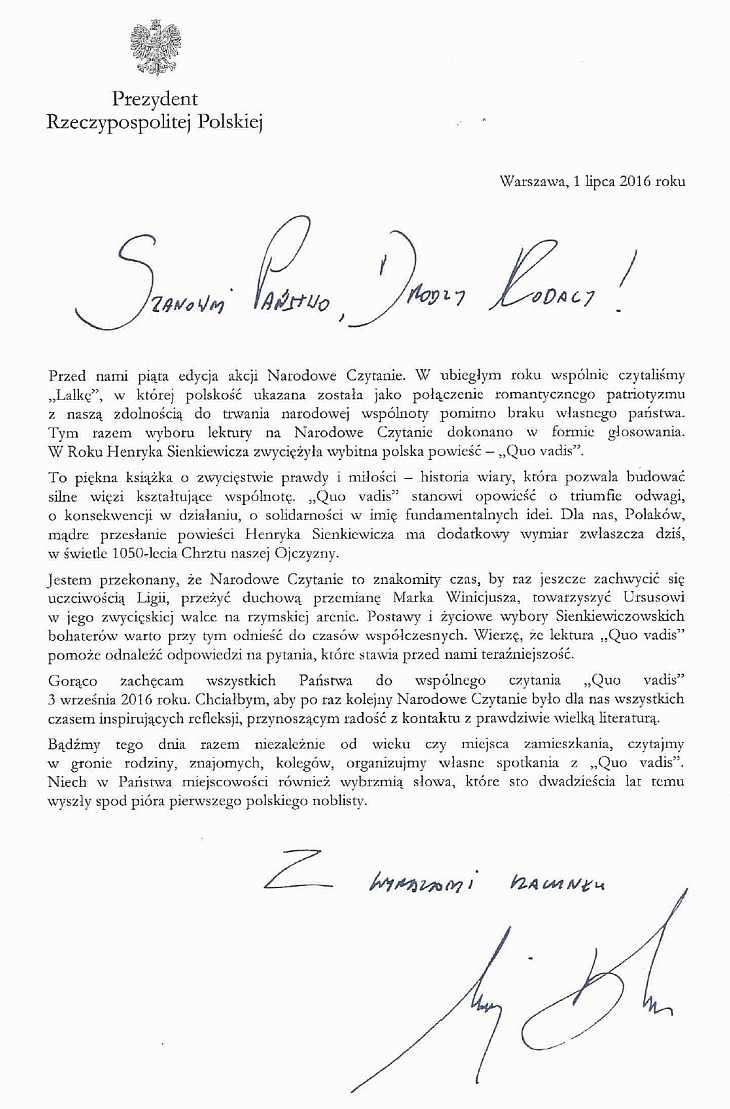 Prezydent
Rzeczypospolitej Polskiej
Warszawa, 1 lipca 2016 roku
Szanowni Państwo, Drodzy Rodacy!
Przed nami piąta edycja akcji Narodowe Czytanie. W ubiegłym roku wspólnie czytaliśmy
„Lalkę”, w której polskość ukazana została jako połączenie romantycznego patriotyzmu
z naszą zdolnością do trwania narodowej wspólnoty pomimo braku własnego państwa.
Tym razem wyboru lektury na Narodowe Czytanie dokonano w formie głosowania.
W Roku Henryka Sienkiewicza zwyciężyła wybitna polska powieść – „Quo vadis”.
To piękna książka o zwycięstwie prawdy i miłości – historia wiary, która pozwala budować
silne więzi kształtujące wspólnotę. „Quo vadis” stanowi opowieść o triumfie odwagi,
o konsekwencji w działaniu, o solidarności w imię fundamentalnych idei. Dla nas, Polaków,
mądre przesłanie powieści Henryka Sienkiewicza ma dodatkowy wymiar zwłaszcza dziś,
w świetle 1050-lecia Chrztu naszej Ojczyzny.
Jestem przekonany, że Narodowe Czytanie to znakomity czas, by raz jeszcze zachwycić się
uczciwością Ligii, przeżyć duchową przemianę Marka Winicjusza, towarzyszyć Ursusowi
w jego zwycięskiej walce na rzymskiej arenie. Postawy i życiowe wybory Sienkiewiczowskich
bohaterów warto przy tym odnieść do czasów współczesnych. Wierzę, że lektura „Quo vadis”
pomoże odnaleźć odpowiedzi na pytania, które stawia przed nami teraźniejszość.
Gorąco zachęcam wszystkich Państwa do wspólnego czytania „Quo vadis”
3 września 2016 roku. Chciałbym, aby po raz kolejny Narodowe Czytanie było dla nas wszystkich
czasem inspirujących refleksji, przynoszącym radość z kontaktu z prawdziwie wielką literaturą.
Bądźmy tego dnia razem niezależnie od wieku czy miejsca zamieszkania, czytajmy
w gronie rodziny, znajomych, kolegów, organizujmy własne spotkania z „Quo vadis”.
Niech w Państwa miejscowości również wybrzmią słowa, które sto dwadzieścia lat temu
wyszły spod pióra pierwszego polskiego noblisty.
Z wyrazami szacunku